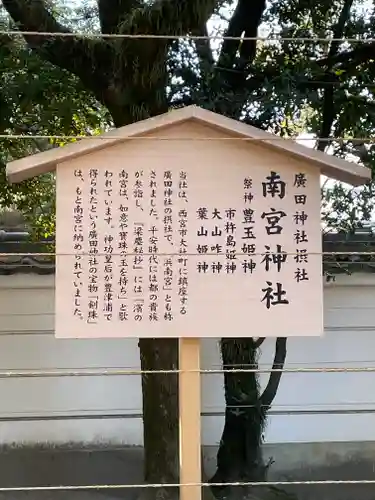 廣田神社摂社
南宮神社
祭神 豊玉姫神
市杵島姫神
大山咋神
葉山姫神
当社は、西宮市大社町に鎮座する
廣田神社の摂社で、「浜南宮」とも称
されました。平安時代には都の貴族
が参詣し、『梁塵秘抄』には「濱の
南宮は、如意や宝珠の玉を持ち」と歌
われています。神功皇后が豊津浦で
得られたという廣田神社の宝物「剣珠」
は、もと南宮に納められていました。